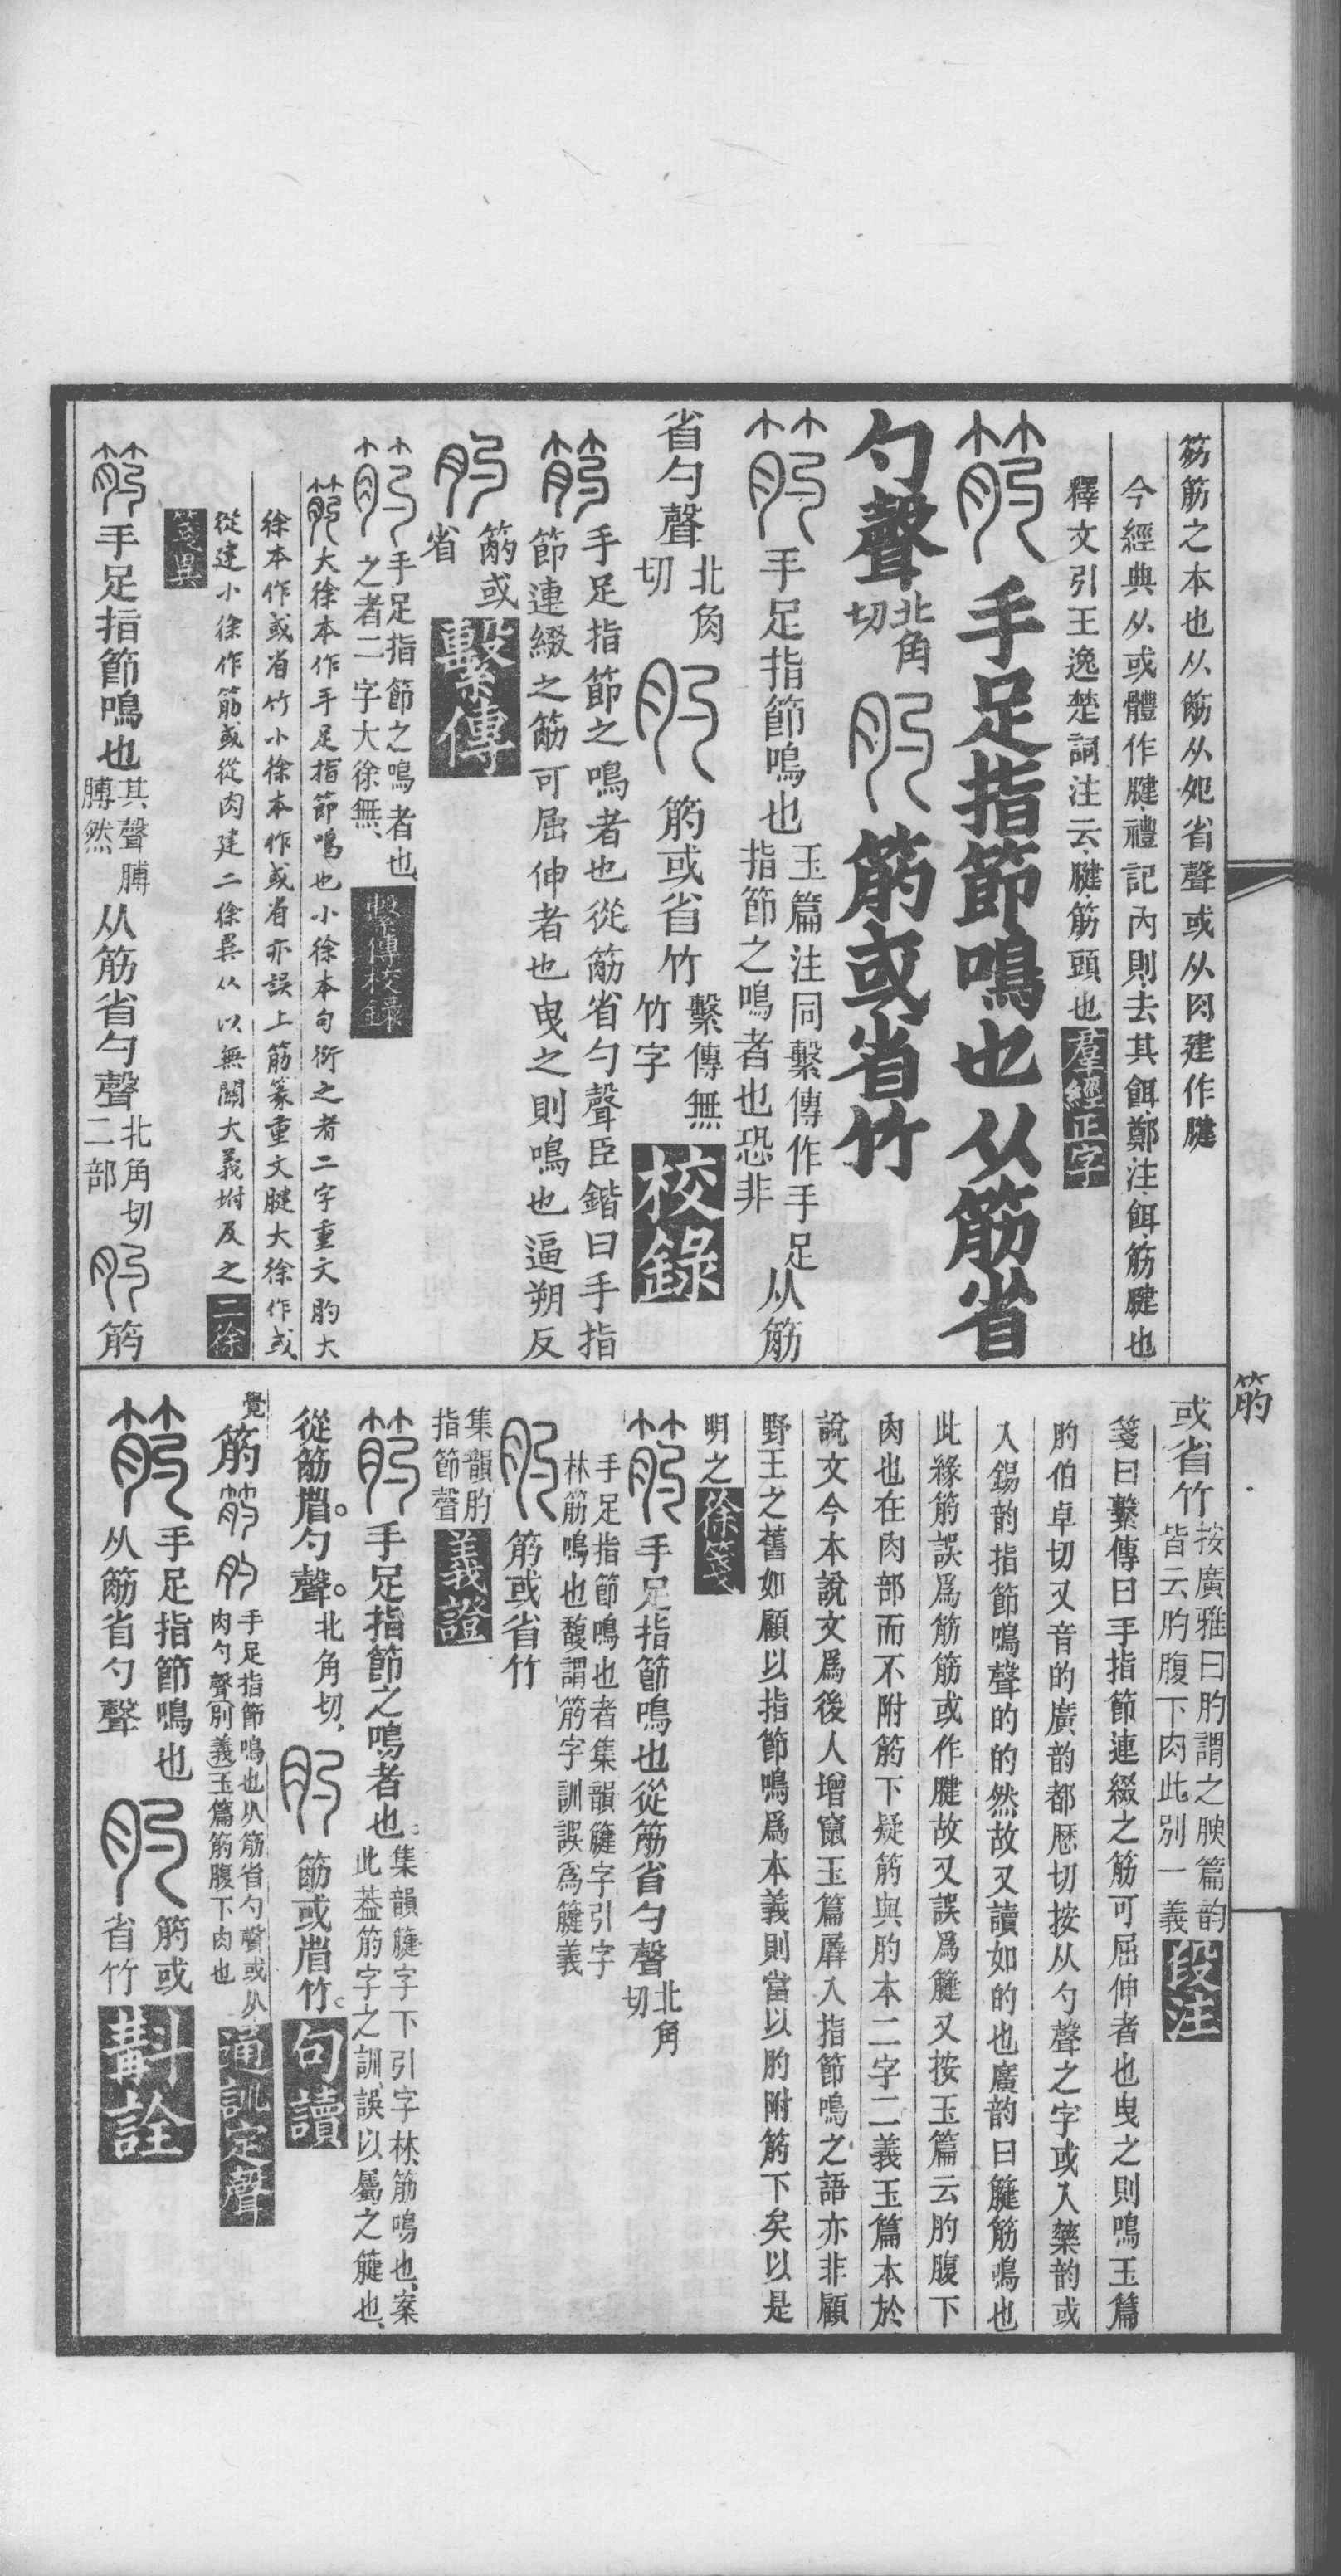 筋筋之本也从筋从夗省聲或从肉建作腱
今經典从或體作腱禮記內則去其餌鄭注餌筋腱也
釋文引王逸楚詞注云腱筋頭也羣經正字
手足指節鳴也从筋省
勺聲北角切肑筋或省竹
手足指節鳴也玉篇注同繫傳作手足指節之鳴者也恐非从筋
省勺聲北角切筋或省竹繫傳無竹字校錄
手足指節之鳴者也從筋省勺聲臣鍇曰手指
節連綴之筋可屈伸者也曳之則鳴也逼朔反
筋或省繫傳
手足指節之鳴者也之者二字大徐無繫傳校錄
大徐本作手足指節鳴也小徐本句衍之者二字重文肑大
徐本作或省竹小徐本作或省亦誤上筋篆重文腱大徐作或
從建小徐作筋或從肉建二徐異从以無關大義坿及之二徐
箋異
手足指節鳴也其聲膊膊然从筋省勺聲北角切二部筋
或省竹按廣雅曰肑謂之腴篇韵皆云肑腹下肉此別一義段注
箋曰繫傳曰手指節連綴之筋可屈伸者也曳之則鳴玉篇
肑伯卓切又音的廣韵都歷切按从勺聲之字或入藥韵或
入錫韵指節鳴聲的的然故又讀如的也廣韵曰筋鳴也
此緣筋誤爲筋筋或作腱故又誤爲又按玉篇云肑腹下
肉也在肉部而不附筋下疑筋與肑本二字二義玉篇本於
說文今本說文爲後人增竄玉篇羼入指節鳴之語亦非顧
野王之舊如顧以指節鳴爲本義則當以肑附筋下矣以是
明之徐箋
手足指節鳴也從筋省勺聲北角切
手足指節鳴也者集韻字引字林筋鳴也馥謂筋字訓誤爲義
筋或省竹
集韻肑指節聲義證
手足指節之鳴者也集韻字下引字林筋鳴也案此葢筋字之訓誤以屬之也
從筋省勺聲北角切筋或省竹句讀
覺手足指節鳴也从筋省勺聲或从肉勺聲別義玉篇筋腹下肉也通訓定聲
手足指節鳴也从筋省勺聲筋或省竹斠詮